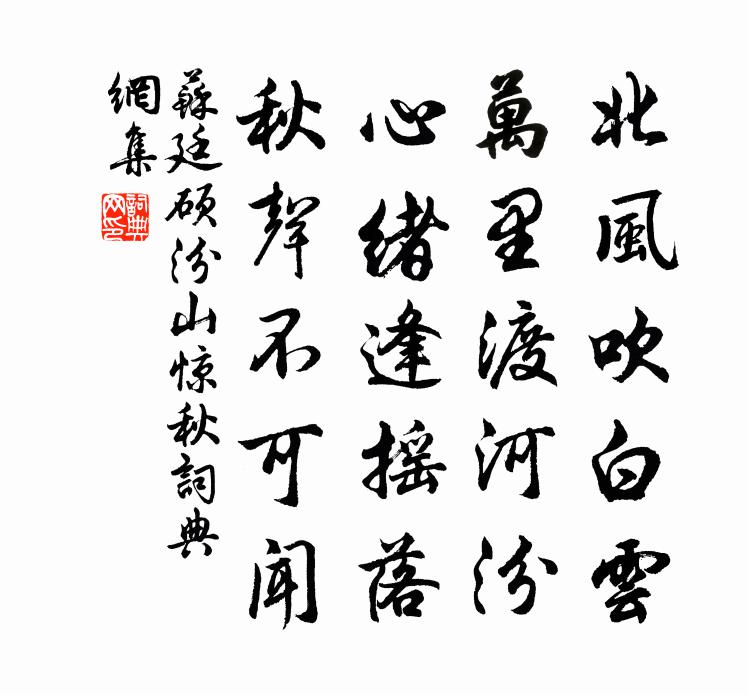 北風吹白雲
萬里渡河汾
心緒逢摇落
秋聲不可聞
蘇廷碩汾山惊秋詞典
網集
詞典
网印